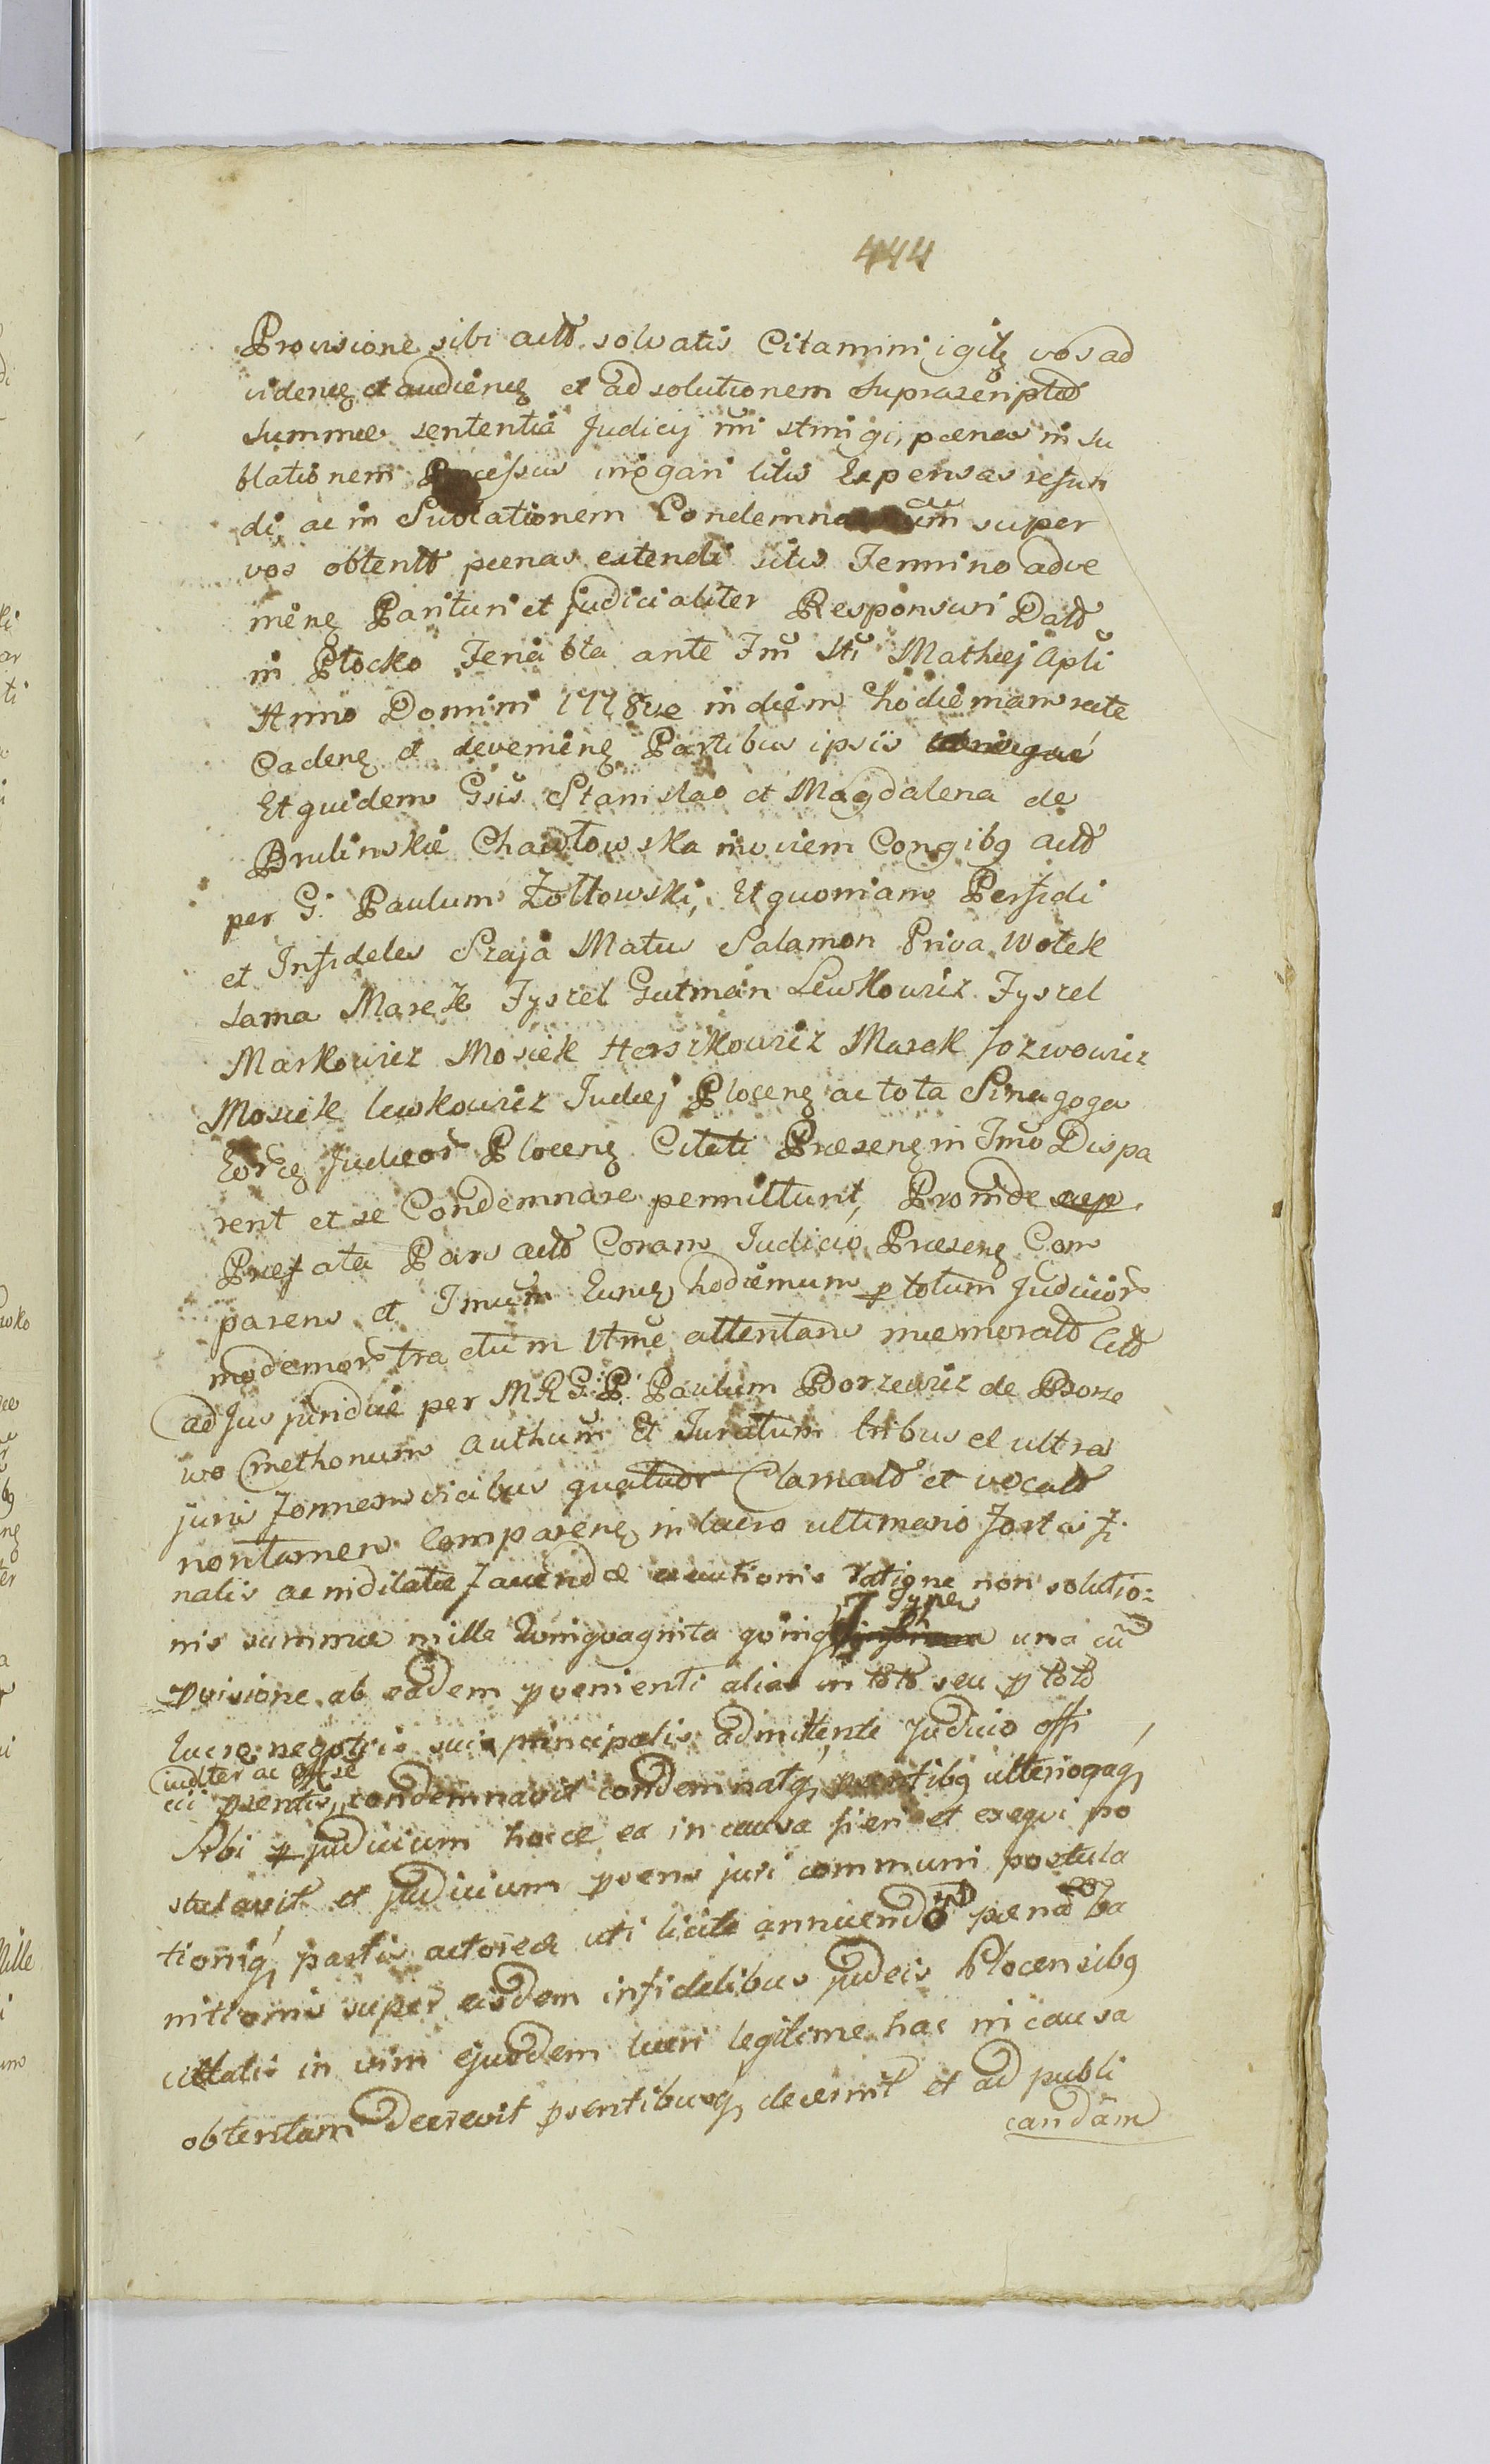 444
Provisione sibi actt solvatis Citamini igitz vos ad
videnz et audienz et ad solutionem suprascriptae
summae sententia Judicij stringi, paenas in su
blationem Processus irrogari litis Expensas refun
di, ac in Sublationem super
vos obtentt paenas extendi sitis Termino adve
nienz Parituri et judicialiter Responsuri Datt
in Płocko Feria 6ta ante Fm Sti Mathaej Apli
Anno Domini 1778vo in diem hodiernam rite
Cadenz et devenienz Partibus ipsis
Et quidem Gsis Stanislao et Magdalena de
Brulinskie Chądłowska invicem Congibq actt
per G. Paulum Zołtowski, Et quoniam Perfidi
et Infideles Szaja Matus Salamon Priva Wolek
Lama Marek Jyzrel Gutman Lewkowicz Jyzrel
Markowicz Mosiek Herszkowicz Marek Jozwowicz
Mosiek Lewkowicz Judaej Plocenz ac tota Sinagoga
Judaeor Plocenz Citati Praesenz in Tmo Dispa
rent et se Condemnare permittunt, Proinde
Praefata Pars actt Coram Judicio Praesenz Com
parens et Tmum Eunz hodiernum p totum Judicior
modernor tractum attentans memoratt Citt
ad Jus juridice per MRG. P. Paulum Borzewicz de Borze
wo Cmethonum Authum Et Juratum tribus et ultra
juris formam vicibus quatuor Clamatt et vocatt
nontamen Comparenz in lucro ultimario fortasfi
nalis ac indilatae faciendae executionis ratione non solutio:
nis summae mille quinquaginta quinq Tyne una cu
pvisione ab eadem pvenienti alias in toto seu p toto
lucro negotijs sui principalis admitente Judicio offi
judlter ac offse
cii psentis condemnavit condemnatq psentibq ulteriorqq
Sibi p judicium hocce ea in causa fieri et exequi po
stulavit et judicium psens juri communi postula
tioniq, partis actoreae uti licite annuendo paena ba
nitionis super eisdem infidelibus judeis Plocensibq
cittatis in vim ejusdem lucri legitime hac in causa
obtentam Decrevit psentibusq, decernit et ad publi
candam